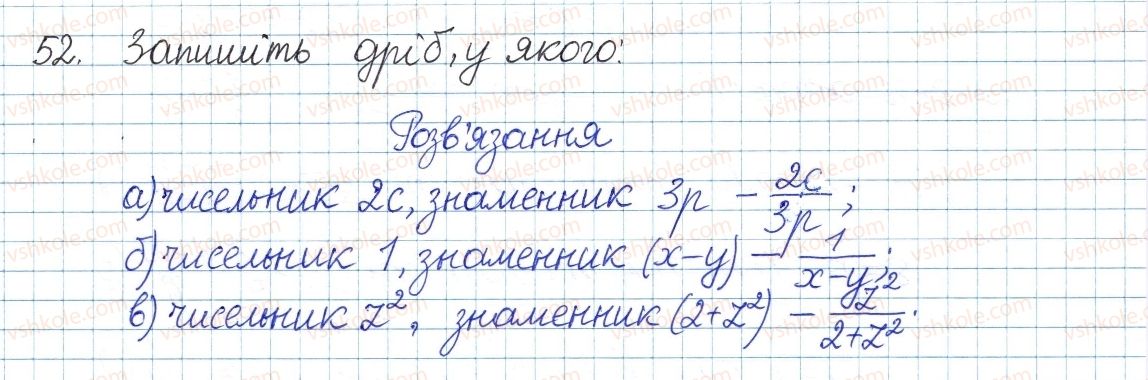 52. Запишіть дріб, у якого:
Розв'язання
а) чисельник 2c, знаменник 3p – 2c/3p;
б) чисельник 1, знаменник (x–y) – 1/x–y;
в) чисельник z², знаменник (2+z²) – z²/2+z².